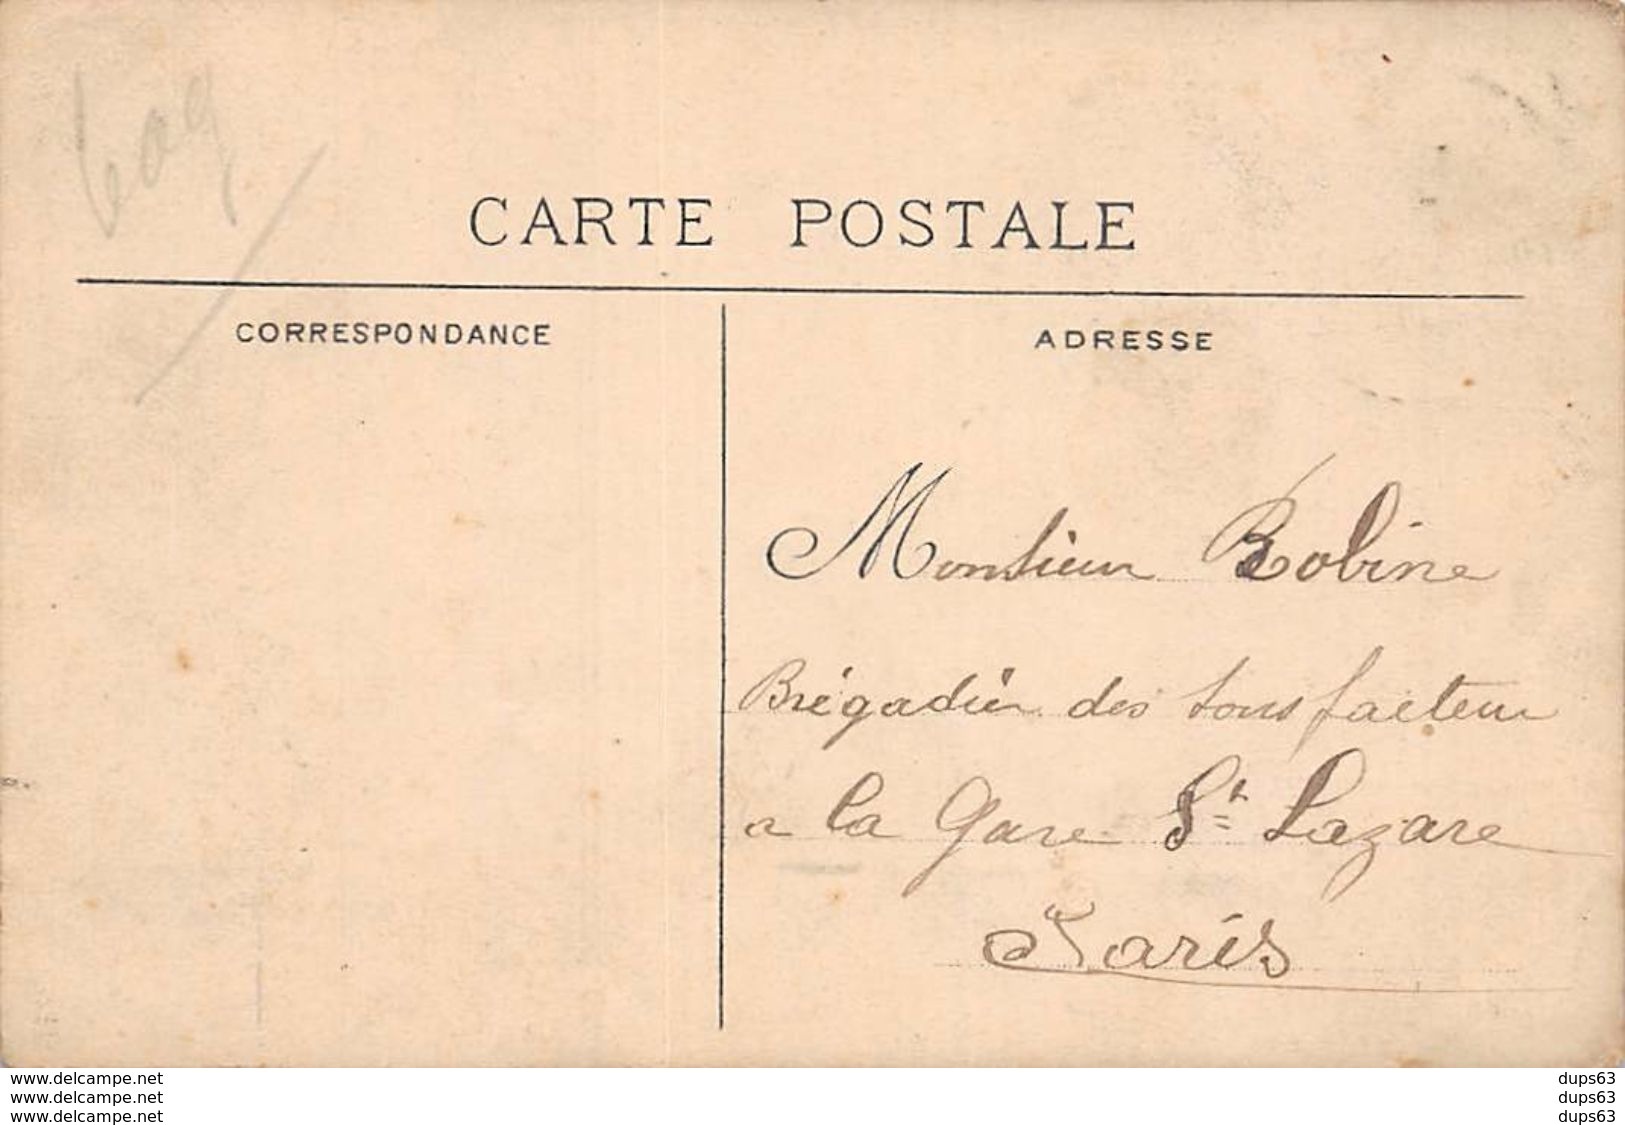 CARTE POSTALE
CORRESPONDANCE
ADRESSE
Monsieur Robine
Brégadier des sous facteur
a la Gare St Lazare
Paris
www.delcampe.net
www.delcampe.net
www.delcampe.net
dups63
dups63
dups63